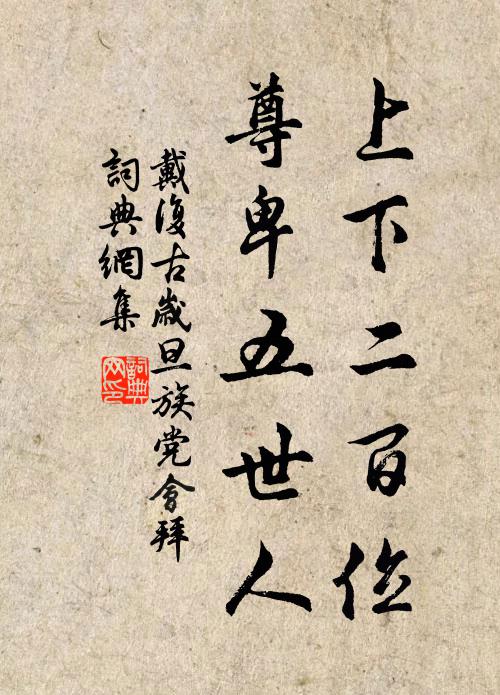 上下二百位
尊卑五世人
戴復古歲旦族党會拜
詞典網集
詞典
网印